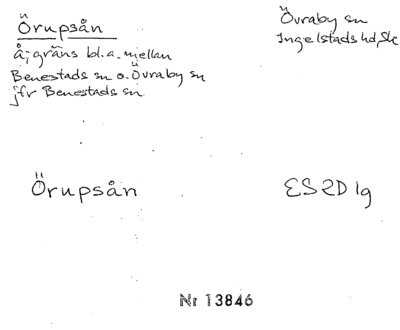 Örupsån
Övraby sn
Ingelstads hd, Sk
å; gräns bl.a. mellan
Benestads sn o. Övraby sn
jfr Benestads sn
Örupsån
ES2D1g
Nr 13846